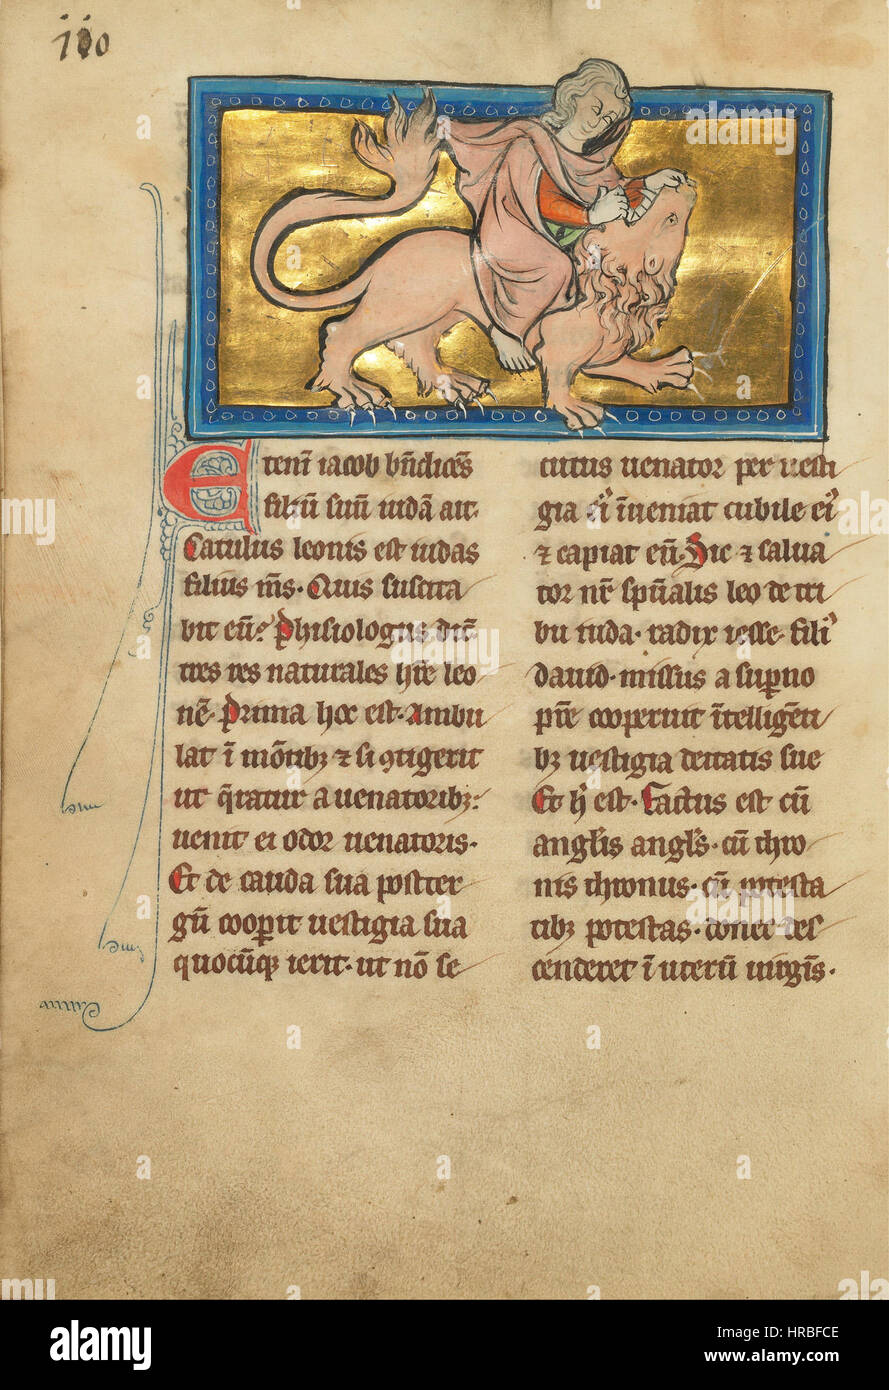 110
Eteni iacob bn̄dicēs
filiū suū iudā ait.
Catulus leonis est iudas
filius m̄s. Quis suscita
bit eū? Phisiologus dic̄
tres res naturales hr̄e leo
nē. Prima hec est. Ambu
lat ī mōtibꝫ ⁊ si ꝯtigerit
ut q̄ratur a uenatoribꝫ:
uenit ei odor uenatoris.
Et de cauda sua postter
gū coop̄it uestigia sua
quocūqꝫ ierit. ut nō se
cutus uenator per uesti
gia ei᾽ īueniat cubile ei᾽
⁊ capiat eū. Sic ⁊ salua
tor nr̄ sp̄ualis leo de tri
bu iuda. radix iesse. fili᾽
dauid. missus a sup̄no
pr̄e cooperuit ītelligēti
bꝫ uestigia deitatis sue
Et h᾽ est. Factus est cū
angl̄is angl̄s. cū thro
nis thronus. cū potesta
tibꝫ potestas. donec des
cenderet ī uterū uirgīs.
alamy
Image ID: HRBFCE
www.alamy.com